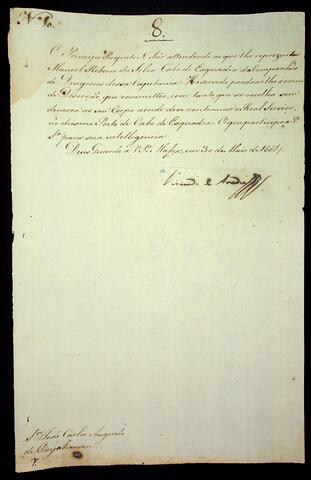 Nº 10.
8.
O Principe Regente N. Snr. attendendo ao que lhe representou
Manoel Ribeiro da Silva Cabo de Esquadra da Companhia
de Dragoens dessa Capitania: He servido perdoar lhe o crime
de Deserção, que commetteo, com tanto que se recolha sem
demora ao seu Corpo aonde deve continuar o Real Serviço,
no mesmo Posto de Cabo de Esquadra. O que participo a V.
Sª para sua intelligencia.
Deus Guarde a V. Sª. Mafra, em 30 de Maio de 1807.
Visconde de Anadia
Snr. José Carlos Augusto
de Oeynhausen